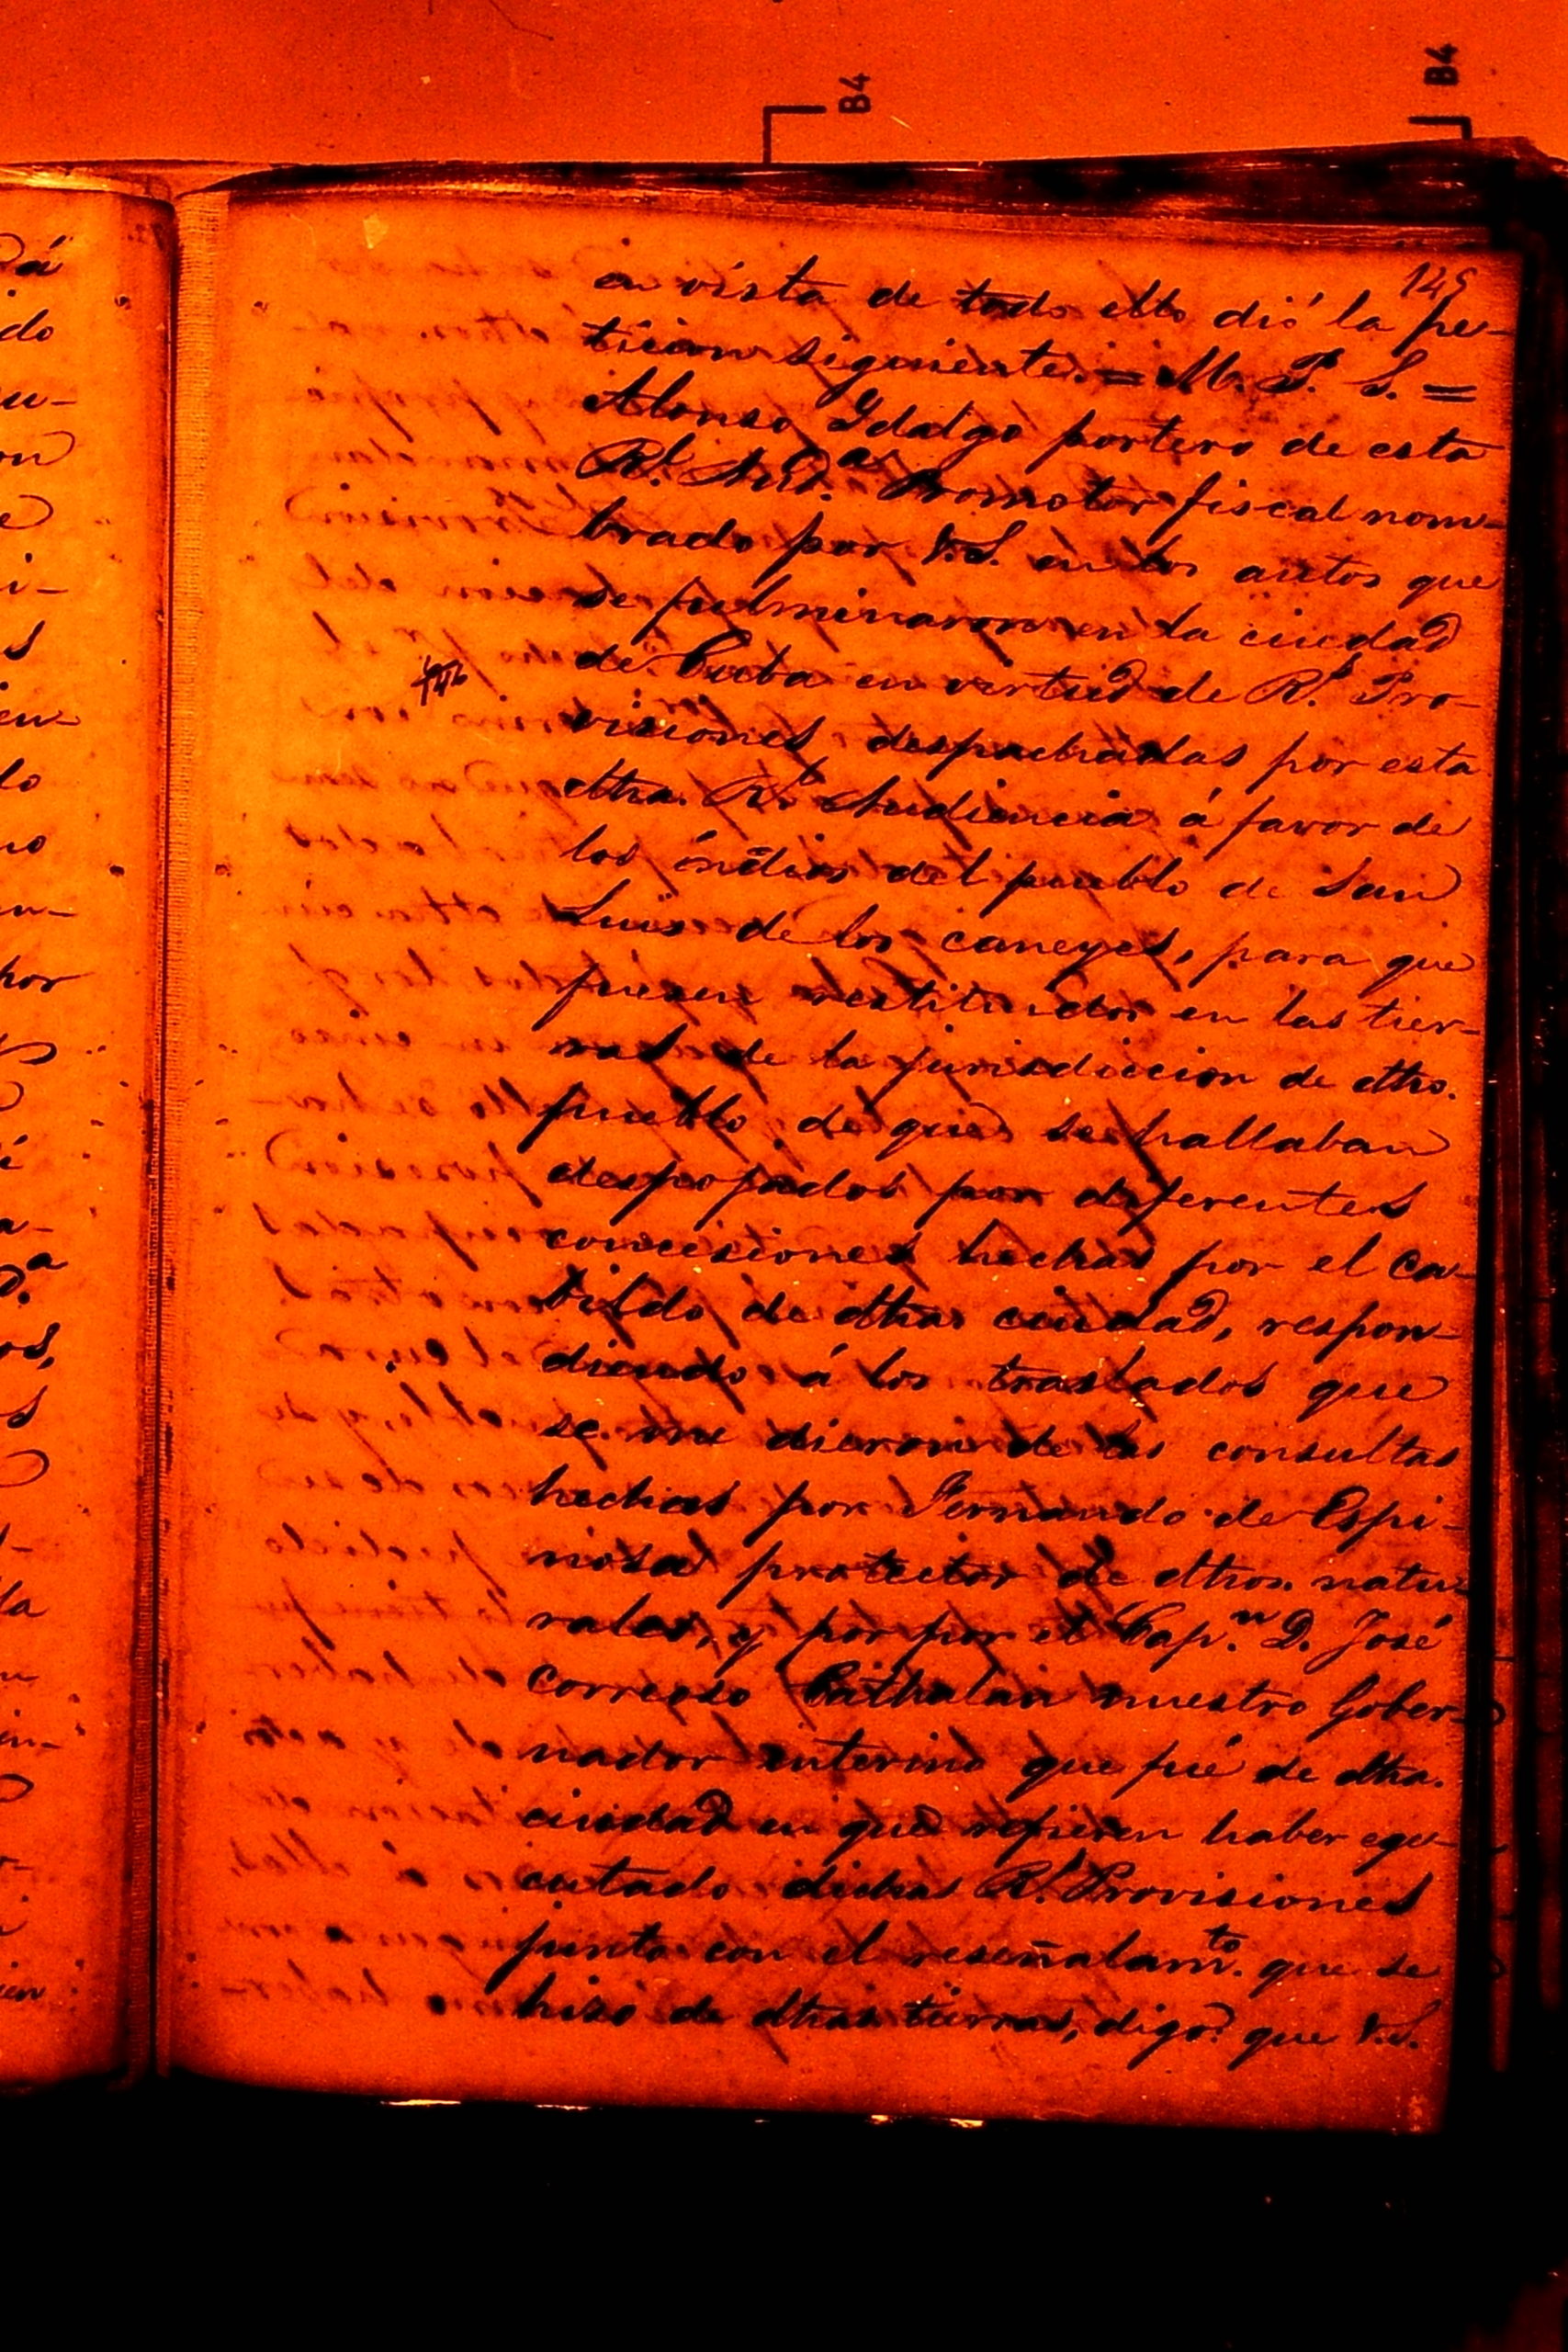 B4
B4
145
en vista de todo ello dió la pe-
ticion siguiente. = M. P. S. =
Alonso Ydalgo portero de esta
Rl. Aud.ª Promotor fiscal nom-
brado por V.S. en los autos que
se fulminaron en la ciudad
de Cuba en virtud de Rl. Pro-
visiones despachadas por esta
dtha. Rl. Audiencia á favor de
los índios del pueblo de San
Luis de los caneyes, para que
fuesen restituidos en las tier-
ras de la jurisdiccion de dtho.
pueblo, de que se hallaban
despojados por diferentes
concesiones hechas por el ca-
bildo de dtha ciudad, respon-
diendo á los traslados que
se me dieron de las consultas
hechas por Fernando de Espi-
nosa protector de dthos. natu-
rales, y por por el Cap.n D. José
Correoso Cathalan nuestro Gober-
nador interino que fué de dtha.
ciudad en que refieren haber ege-
cutado dichas Rl. Provisiones
junto con el reseñalam.to que se
hizo de dthas tierras, digo: que V.S.